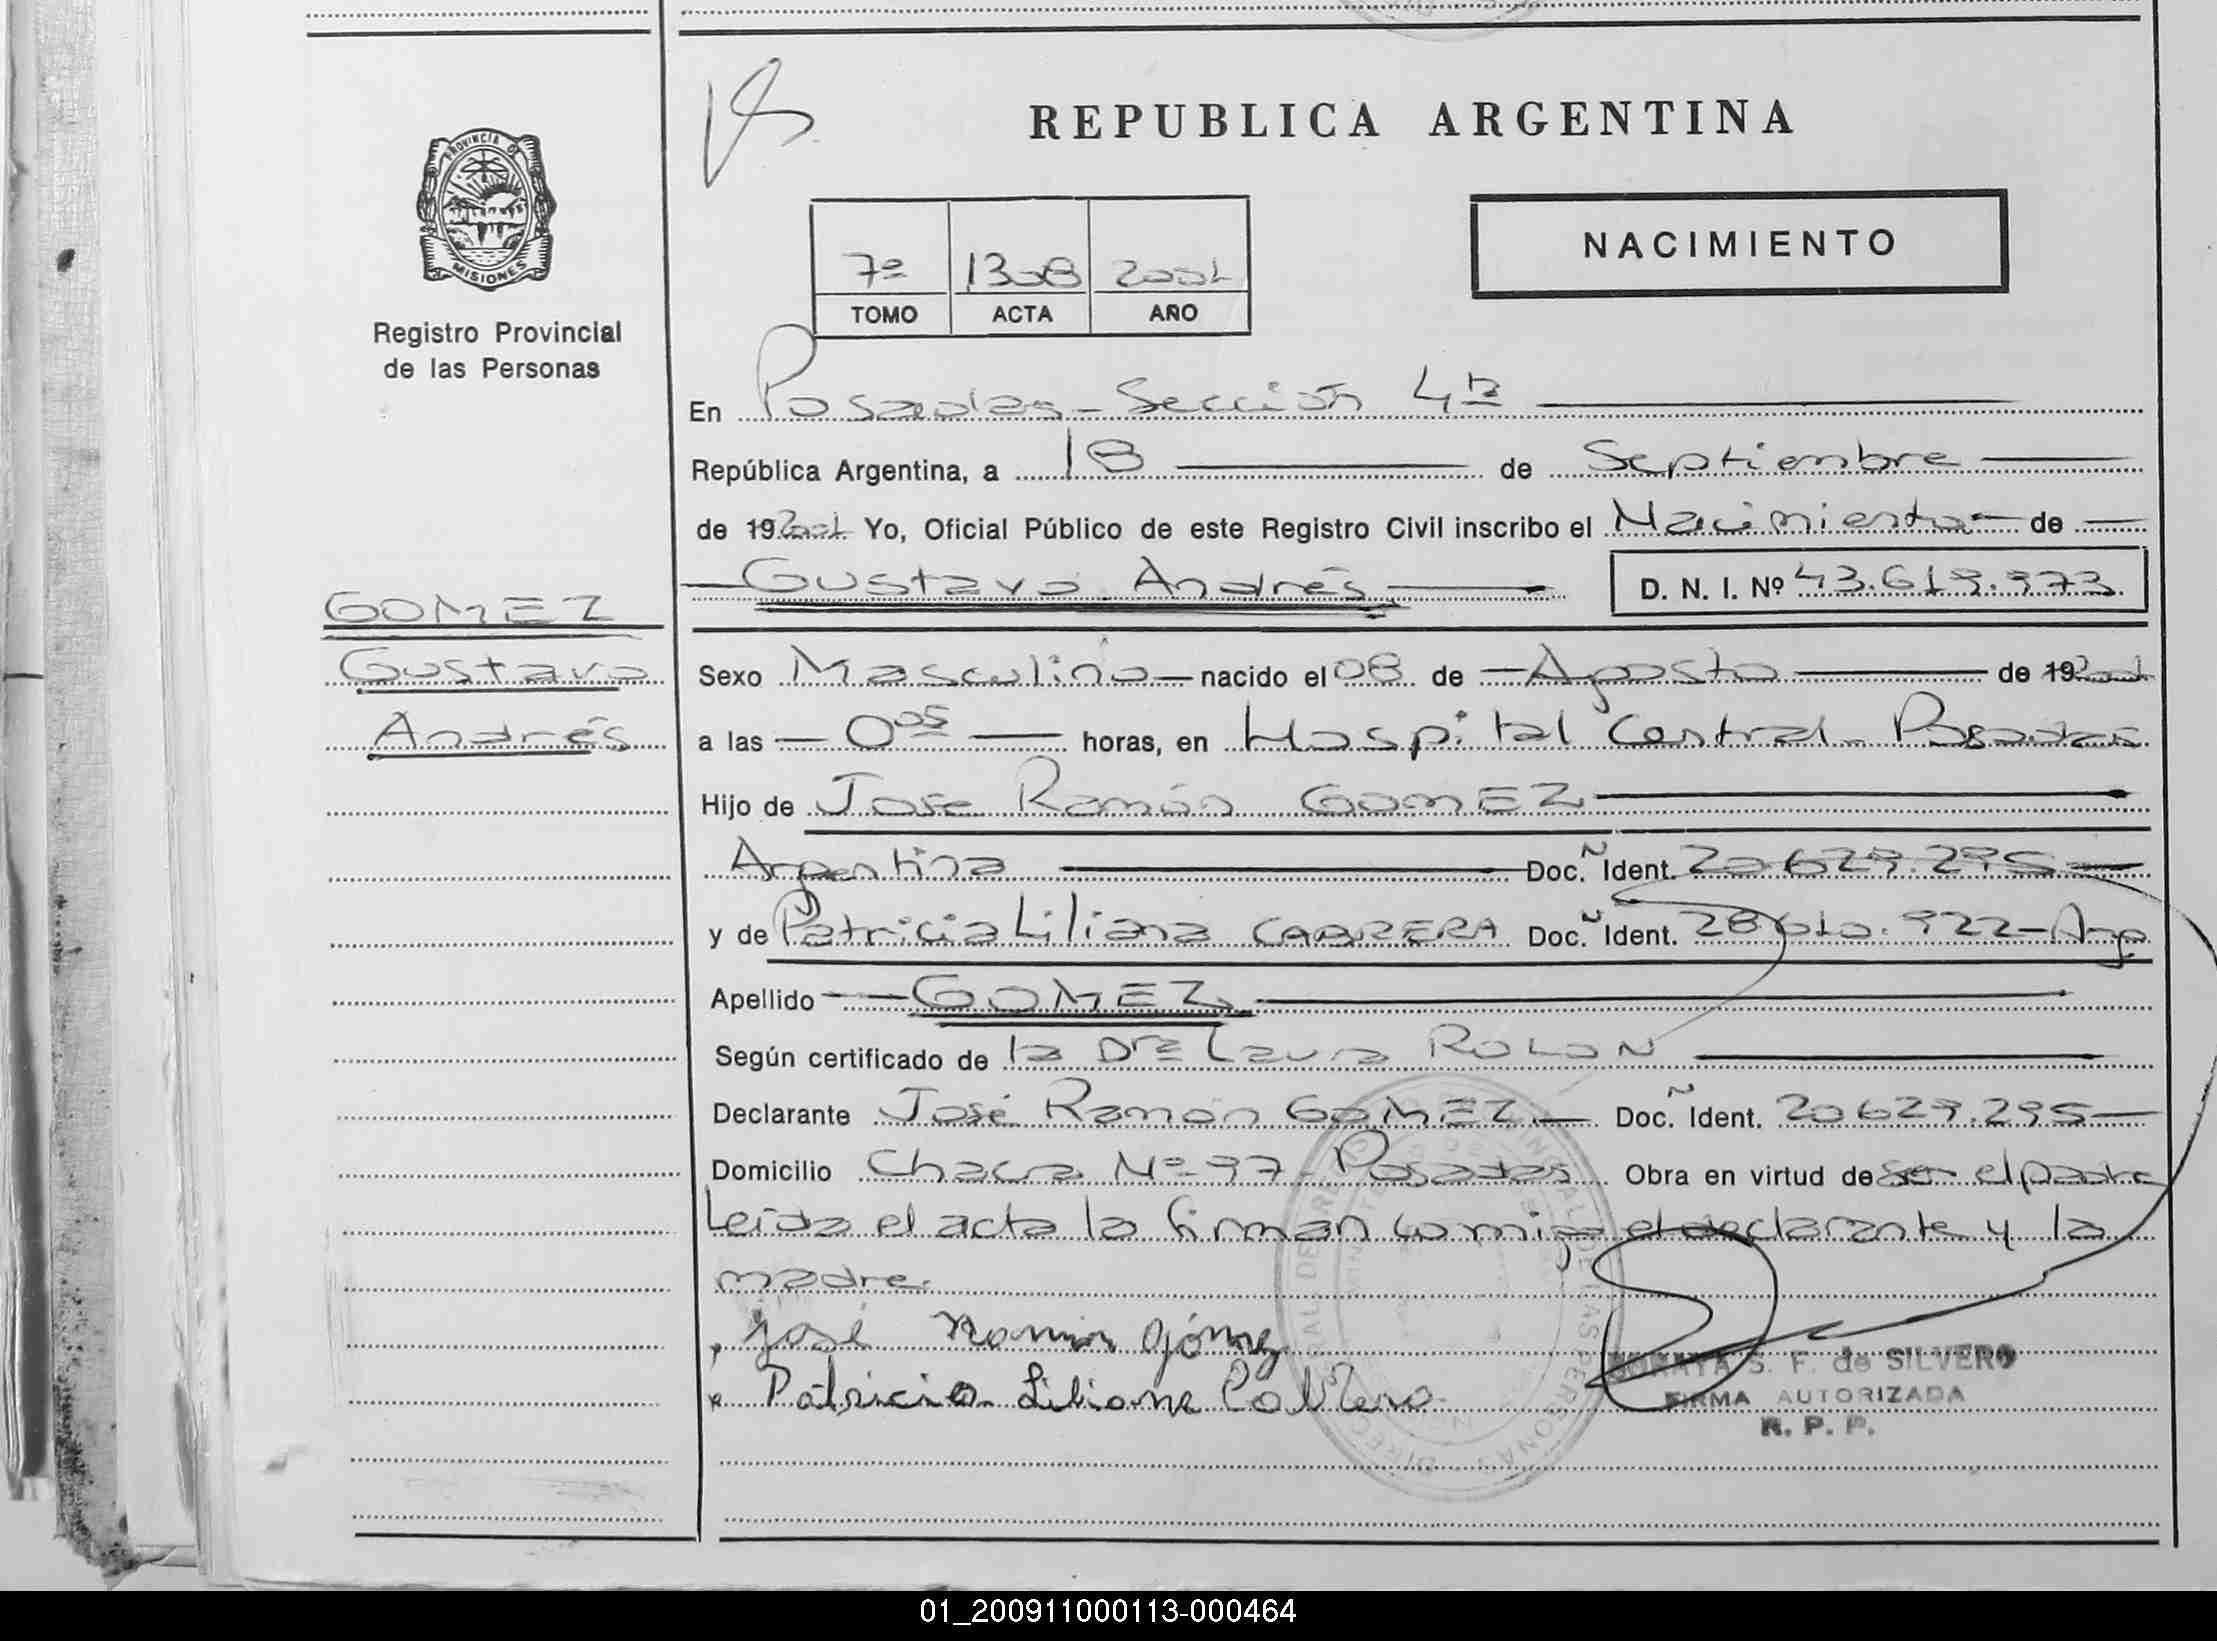 REPUBLICA ARGENTINA
PROVINCIA DE MISIONES
NACIMIENTO
7º 1308 2001
TOMO ACTA AÑO
Registro Provincial
de las Personas
En Posadas - Sección 4ta
República Argentina, a 18 de Septiembre
de 19 2001 Yo, Oficial Público de este Registro Civil inscribo el Nacimiento de
Gustavo Andrés D. N. I. Nº 43.619.973
GOMEZ
Gustavo
Andrés
Sexo Masculino nacido el 08 de Agosto de 19 2001
a las 0 05 horas, en Hospital Central - Posadas
Hijo de José Ramón GOMEZ
Argentina Doc. Ident. 20.629.295
y de Patricia Liliana CABRERA Doc. Ident. 28.610.922 - Arg
Apellido GOMEZ
Según certificado de la Dra Laura ROLON
Declarante José Ramón GOMEZ Doc. Ident. 20.629.295
Domicilio Chacra Nº 97 - Posadas Obra en virtud de ser el padre
Leída el acta la firman conmigo el declarante y la
madre.
José Ramón Gómez
Patricia Liliana Cabrera
SORAYA S. F. de SILVERO
FIRMA AUTORIZADA
R. P. P.
01_200911000113-000464